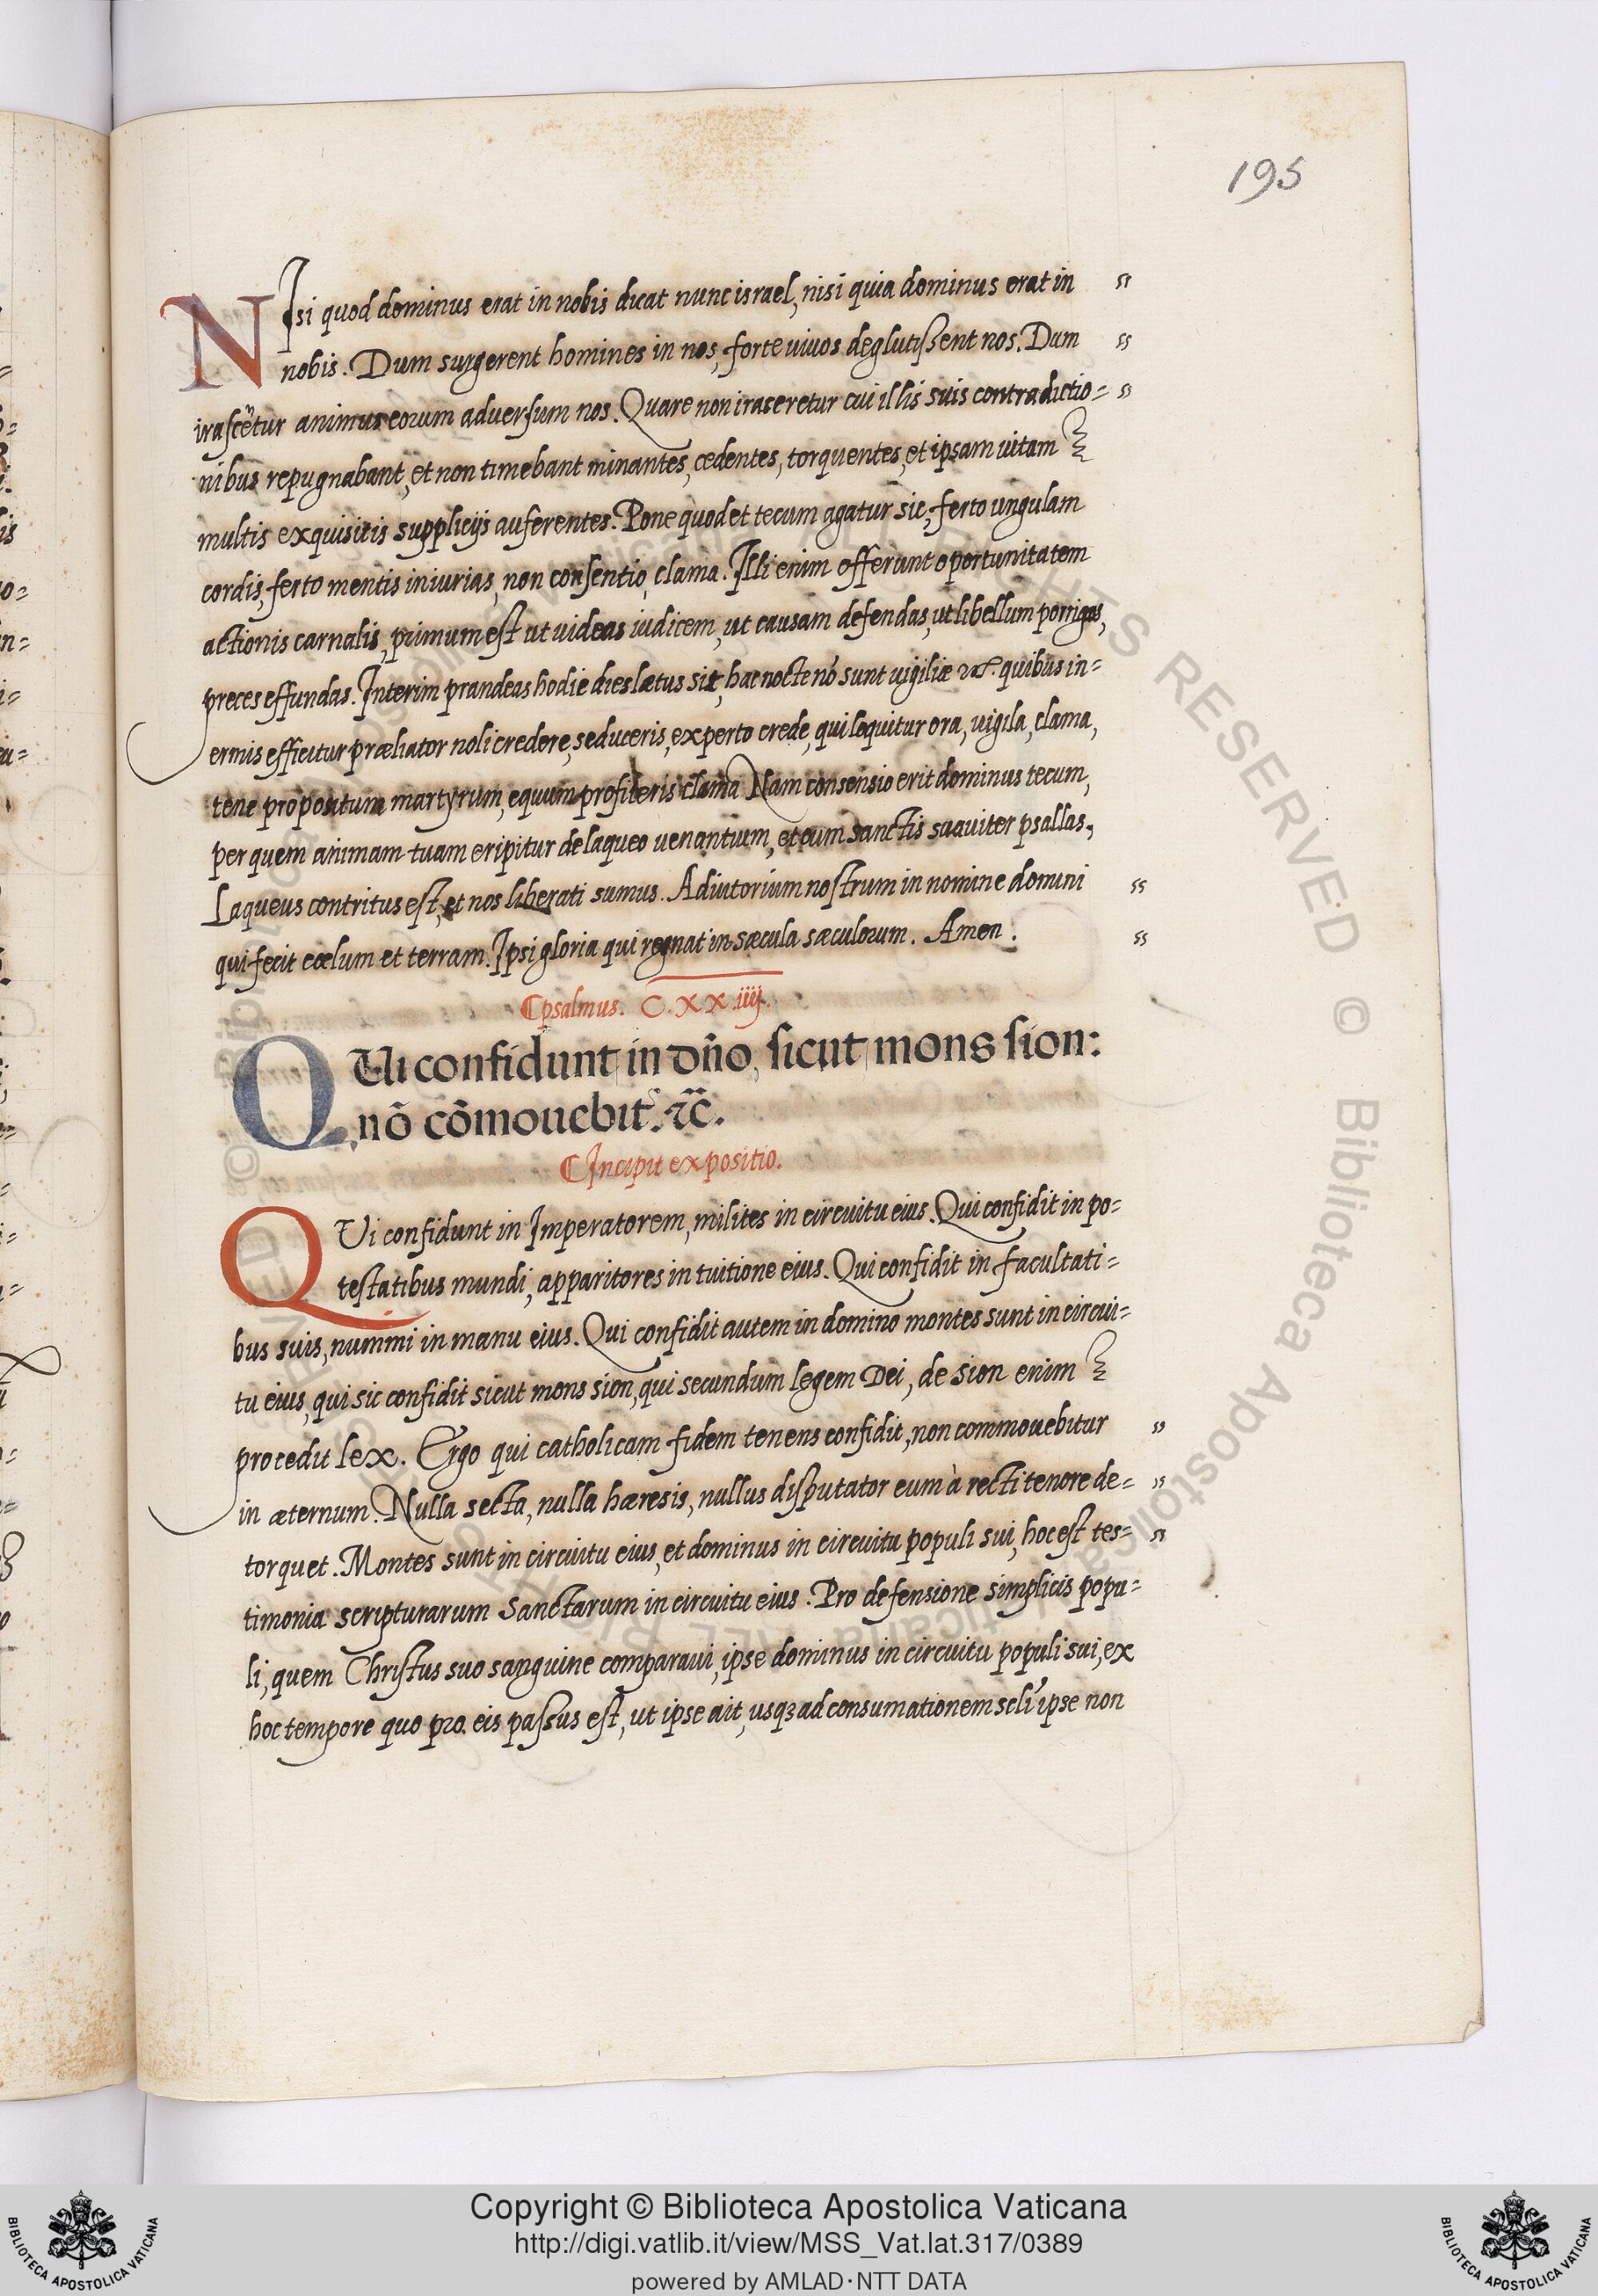 195
NIsi quod dominus erat in nobis dicat nunc israel, nisi quia dominus erat in
nobis. Dum surgerent homines in nos, forte vivos deglutissent nos. Dum
irascẽtur animus eorum adversum nos. Quare non irasceretur cui illis suis contradictio=
nibus repugnabant, et non timebant minantes, cedentes, torquentes, et ipsam vitam
multis exquisitis supplicijs auferentes. Pone quod et tecum agatur sic, ferto ungulam
cordis, ferto mentis iniurias, non consentio, clama. Illi enim offerunt oportunitatem
actionis carnalis, primum est ut videas iudicem, ut causam defendas, ut libellum porrigas,
preces effundas. Interim prandeas hodie dies lætus sit, hac nocte nõ sunt vigiliæ quibus in=
ermis efficitur præliator noli credere, seduceris, experto crede, qui loquitur ora, vigila, clama,
tene propositum martyrum, equum profiteris clama Nam consensio erit dominus tecum,
per quem animam tuam eripitur de laqueo venantium, et cum sanctis suaviter psallas,
Laqueus contritus est, et nos liberati sumus. Adiutorium nostrum in nomine domini
qui fecit cœlum et terram. Ipsi gloria qui regnat in sæcula sæculorum. Amen.
¶psalmus. C.XX.iiij.
QUi confidunt in dño, sicut mons sion:
nõ cõmovebit. ⁊c̃.
¶Incipit expositio.
QUi confidunt in Imperatorem, milites in circuitu eius. Qui confidit in po=
testatibus mundi, apparitores in tuitione eius. Qui confidit in facultati=
bus suis, nummi in manu eius. Qui confidit autem in domino montes sunt in circui=
tu eius, qui sic confidit sicut mons sion, qui secundum legem Dei, de sion enim
procedit lex. Ergo qui catholicam fidem tenens confidit, non commovebitur
in æternum. Nulla secta, nulla hæresis, nullus disputator eum à recti tenore de=
torquet. Montes sunt in circuitu eius, et dominus in circuitu populi sui, hoc est tes=
timonia scripturarum Sanctarum in circuitu eius. Pro defensione simplicis popu=
li, quem Christus suo sanguine comparavi, ipse dominus in circuitu populi sui, ex
hoc tempore quo pro eis passus est, ut ipse ait, usqꝫ ad consumationem scli ipse non
© Biblioteca Apostolica Vaticana ALL RIGHTS RESERVED
Copyright © Biblioteca Apostolica Vaticana
http://digi.vatlib.it/view/MSS_Vat.lat.317/0389
powered by AMLAD·NTT DATA
BIBLIOTECA APOSTOLICA VATICANA
BIBLIOTECA APOSTOLICA VATICANA